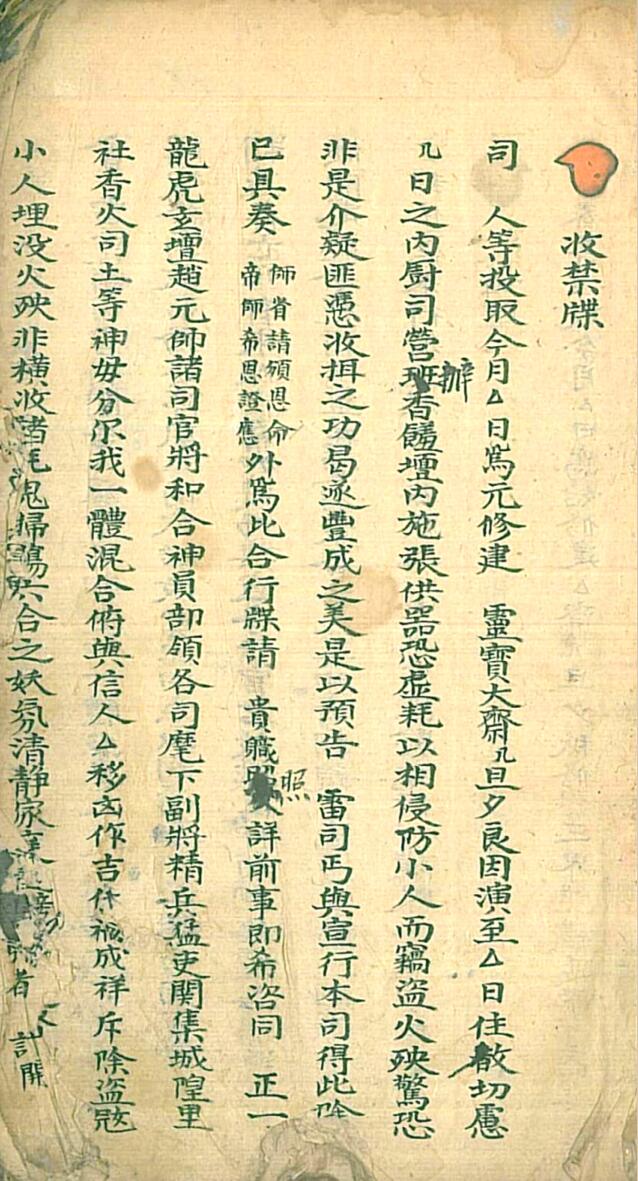 收禁牒
司　人等投取今月厶日為元修建　靈寶大齋几旦夕良因演至厶日住散切慮
几日之内厨司營辦香饈壇内施張供器恐虚耗以相侵防小人而竊盗火殃驚恐
非是介疑匪憑收捐之功曷遂豐成之美是以預告　雷司丐與宣行本司得此除
已具奏
師省請頒恩命
帝師希恩證應
外為此合行牒請　貴職照詳前事即希咨同　正一
龍虎玄壇趙元帥諸司官將和合神員部領各司麾下副將精兵猛吏関集城隍里
社香火司土等神毋分尔我一體混合俯與信人厶移凶作吉作祯成祥斥除盗賊
小人埋没火殃非横收諸耗鬼掃蕩六合之妖氛清静家　者　計開